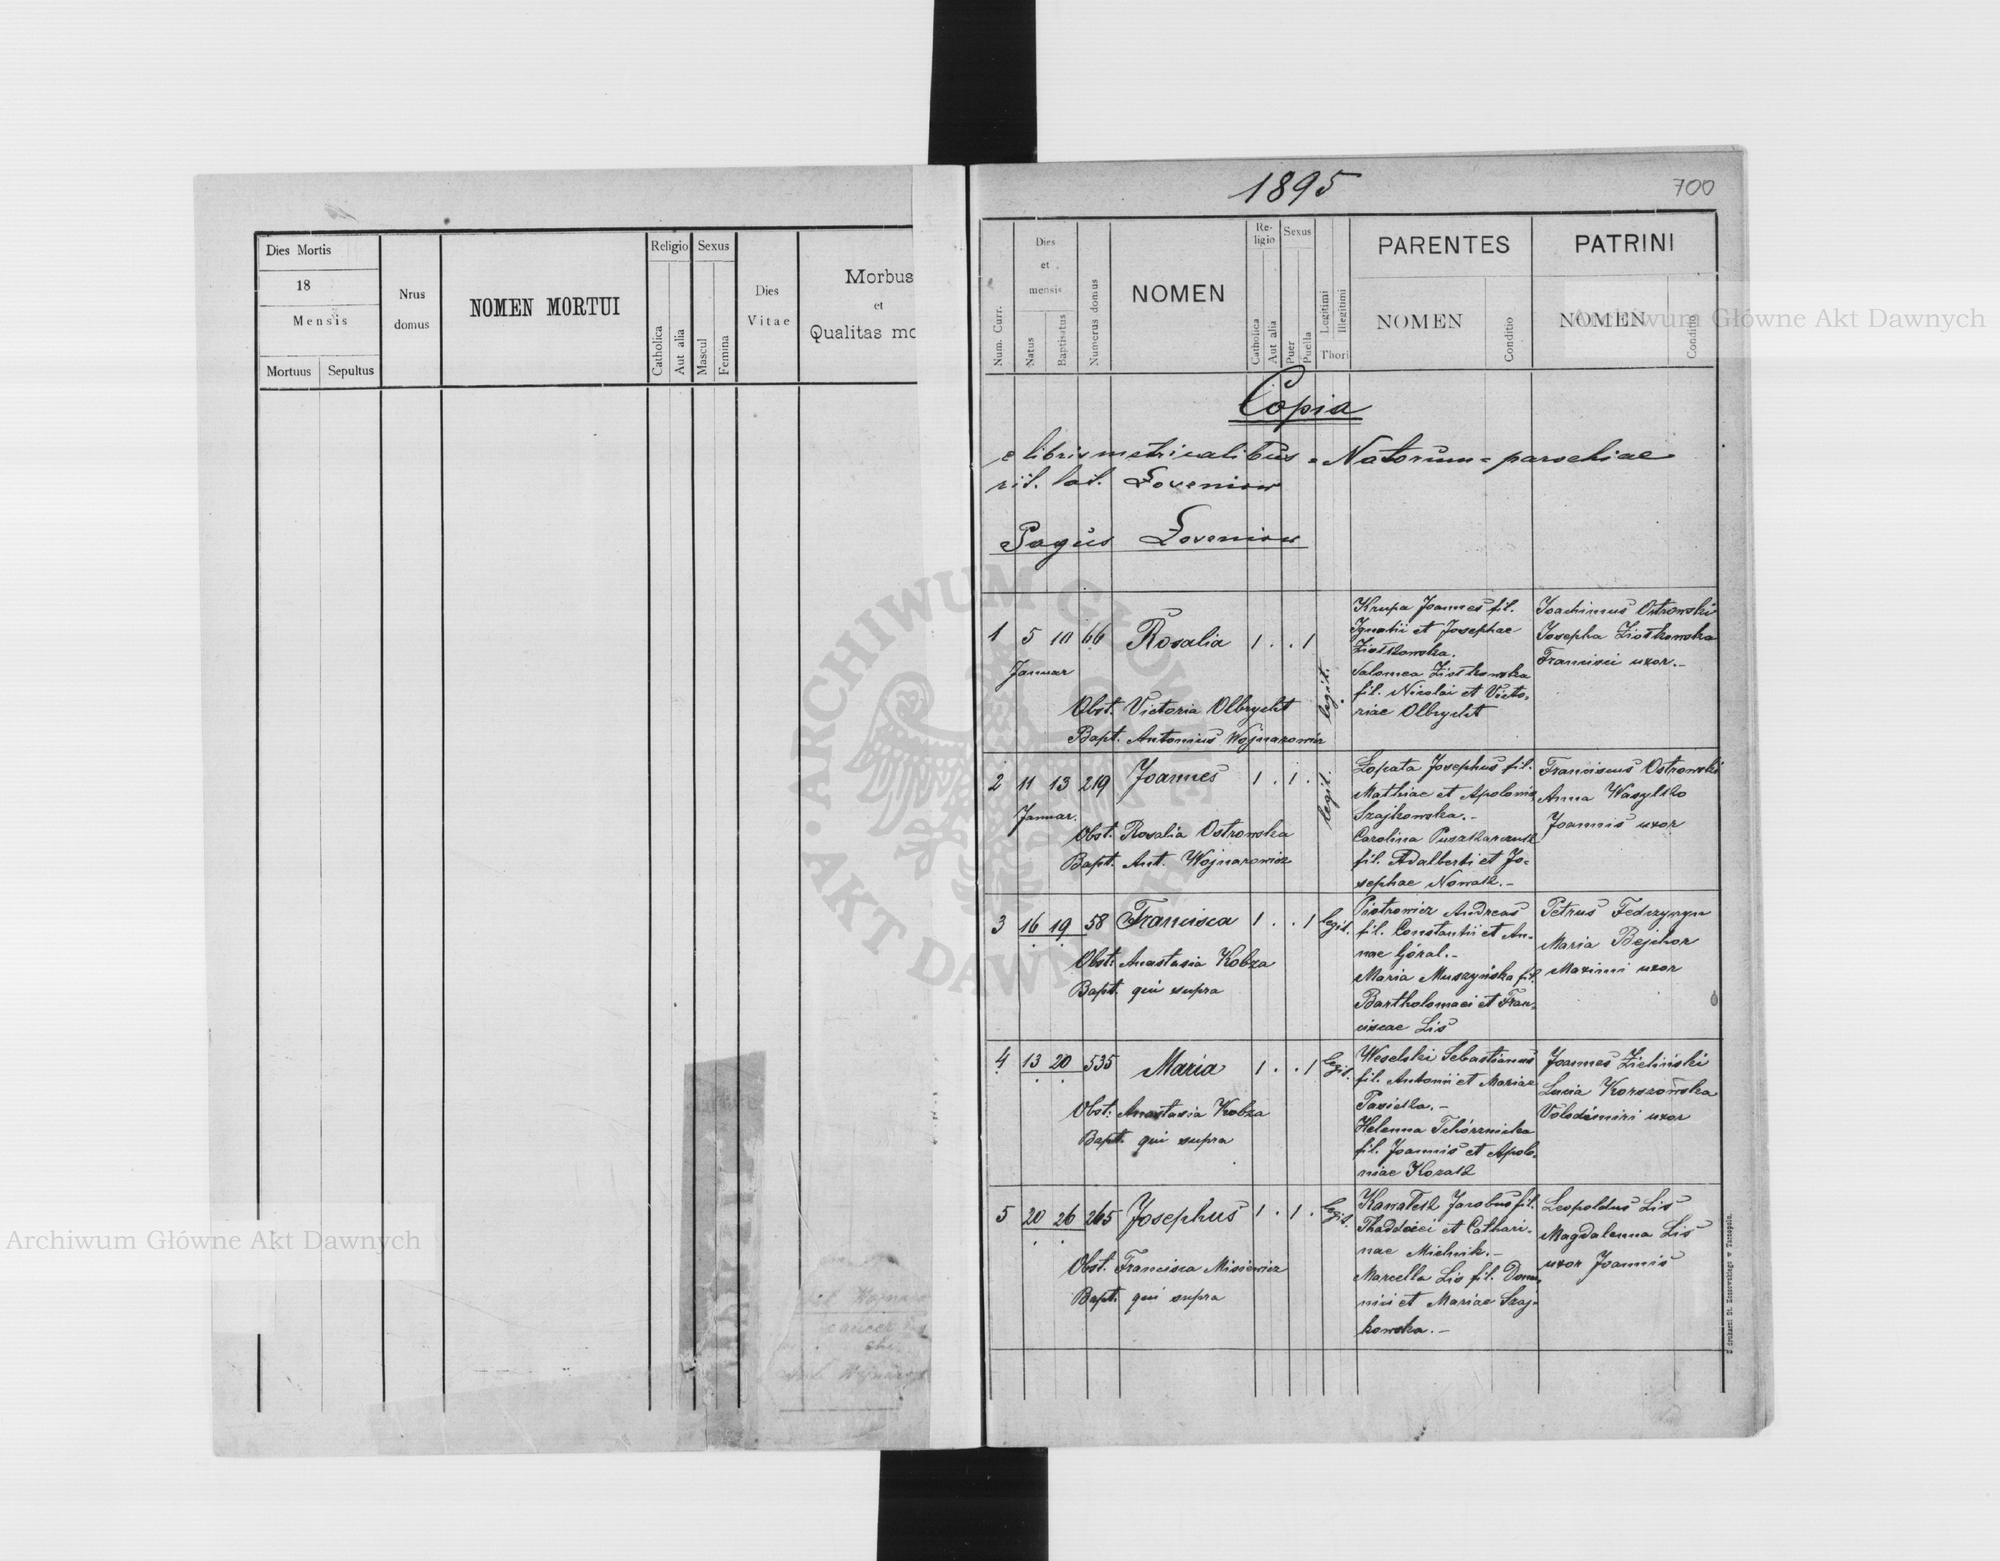 Dies Mortis
18
Mensis
Mortuus Sepultus
Nrus
domus
NOMEN MORTUI
Religio
Catholica
Aut alia
Sexus
Mascul
Femina
Dies
Vitae
Morbus
et
Qualitas mo
1895
700
Num. Curr.
Dies
et
mensis
Natus
Baptisatus
Numerus domus
NOMEN
Re-
ligio
Catholica
Aut alia
Sexus
Puer
Puella
Legitimi
Illegitimi
Thori
PARENTES
NOMEN
Conditio
PATRINI
NOMEN
Conditio
Copia
e libris metricalibus = Natorum = parochiae
rit. lat. Łoveniow
Pagus Łoveniow
1 5 10 66 Rosalia 1 . . 1 legit.
Januar
Obst. Victoria Olbrycht
Bapt. Antonius Wojnarowicz
Krupa Joannes fil.
Ignatii et Josephae
Ziołkowska.
Salomea Ziołkowska
fil. Nicolai et Victo-
riae Olbrycht
Joachimus Ostrowski
Josepha Ziołkowska
Francisci uxor.-
2 11 13 219 Joannes 1 . 1 . legit.
Januar.
Obst. Rosalia Ostrowska
Bapt. Ant. Wojnarowicz
Łopata Josephus fil.
Mathiae et Apoloniae
Szajkowska.-
Carolina Puszkarczuk
fil. Adalberti et Jo-
sephae Nowak.-
Franciscus Ostrowski
Anna Wasylko
Joannis uxor
3 16 19 58 Francisca 1 . . 1 legit.
Obst. Anastasia Kobza
Bapt. qui supra
Piotrowicz Andreas
fil. Constantii et An-
nae Góral.-
Maria Muszyńska fil.
Bartholomaei et Fran-
ciscae Lis
Petrus Fedczyszyn
Maria Bejchor
Maximi uxor
4 13 20 535 Maria 1 . . 1 legit.
Obst. Anastasia Kobza
Bapt. qui supra
Weselski Sebastianus
fil. Antonii et Mariae
Pasieka.-
Helenna Tchórznicka
fil. Joannis et Apolo-
niae Kozak
Joannes Zieliński
Lucia Korszowska
Volodimiri uxor
5 20 26 265 Josephus 1 . 1 . legit.
Obst. Francisca Misiewicz
Bapt. qui supra
Kawałek Jacobus fil.
Thaddaei et Cathari-
nae Mielnik.-
Marcella Lis fil. Domi-
nici et Mariae Szaj-
kowska.-
Leopoldus Lis
Magdalenna Lis
uxor Joannis
Z drukarni St. Kossowskiego w Tarnopolu.
ARCHIWUM GŁÓWNE
AKT DAWNYCH
Archiwum Główne Akt Dawnych
Archiwum Główne Akt Dawnych